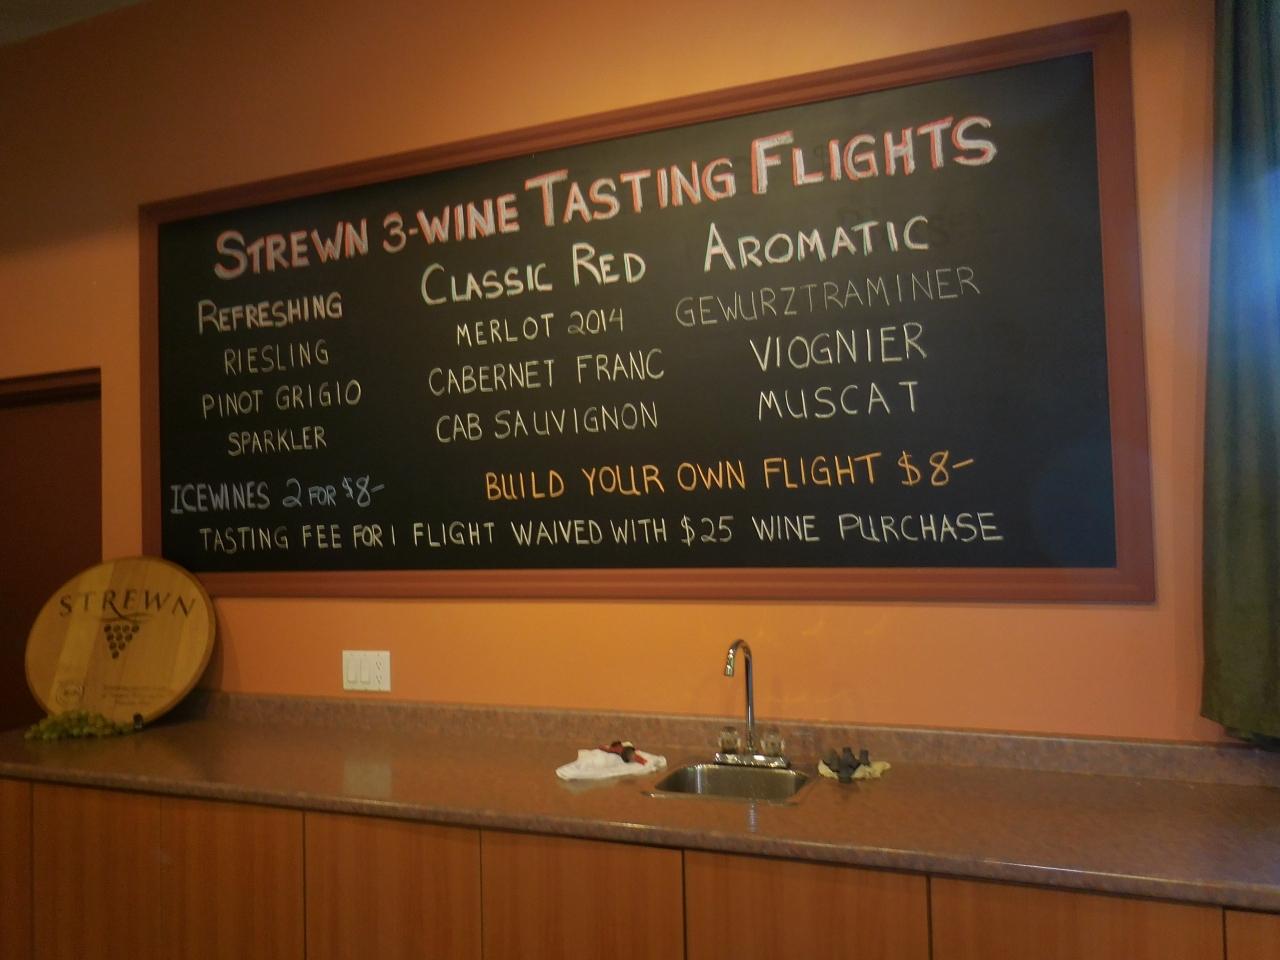 STREWN 3-WINE TASTING FLIGHTS
REFRESHING
RIESLING
PINOT GRIGIO
SPARKLER
CLASSIC RED
MERLOT 2014
CABERNET FRANC
CAB SAUVIGNON
AROMATIC
GEWURZTRAMINER
VIOGNIER
MUSCAT
ICEWINES 2 FOR $8-
BUILD YOUR OWN FLIGHT $8-
TASTING FEE FOR 1 FLIGHT WAIVED WITH $25 WINE PURCHASE
STREWN